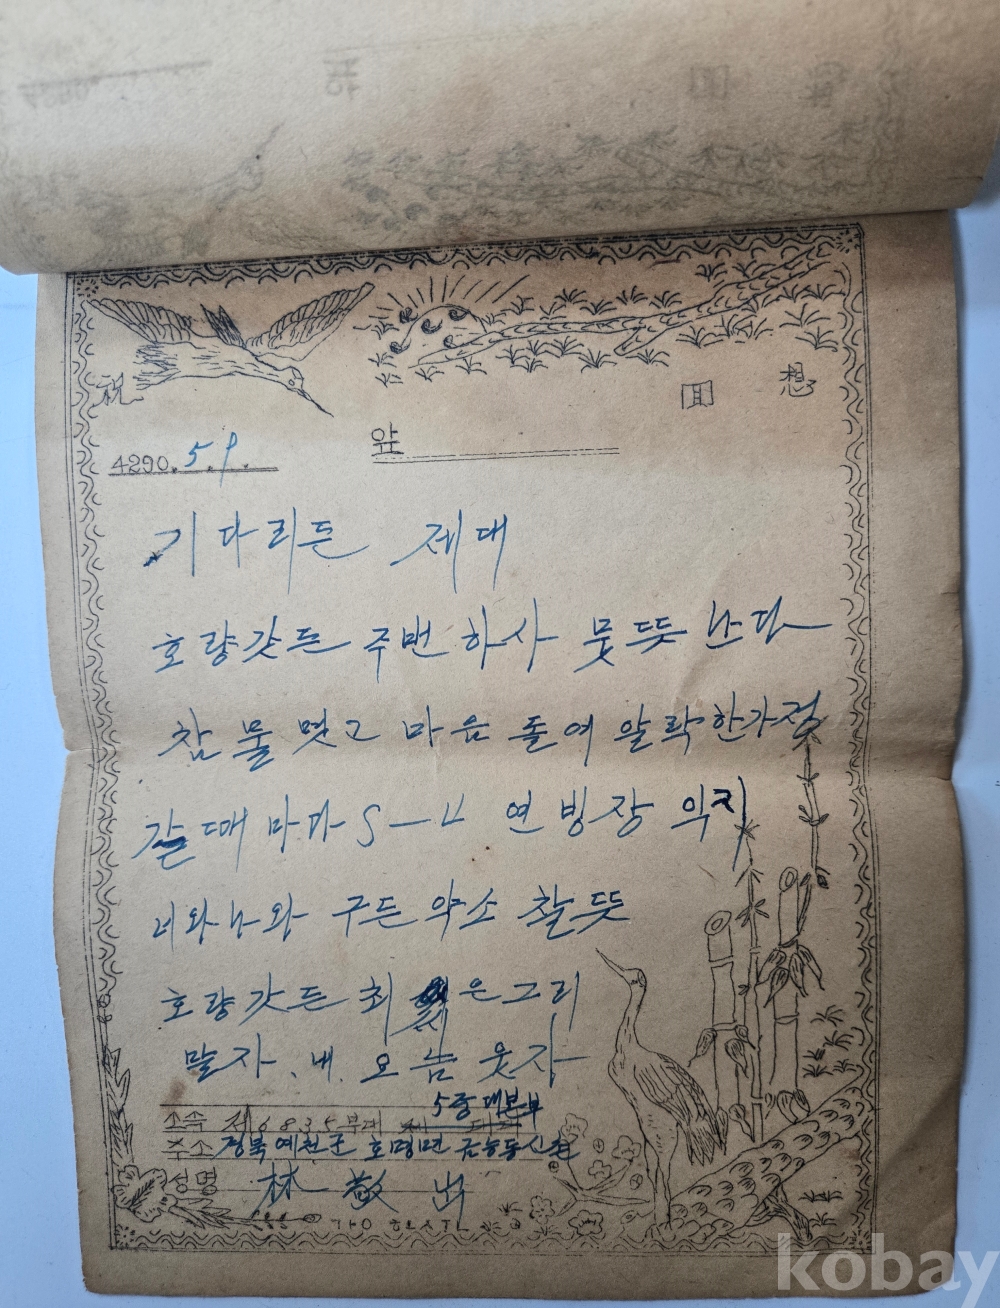 祝 回 想
4290. 5. 9.
앞
기다리든 제대
호랑갓든 주번하사 뭇뜻 난다
참물 몃고 마음 돌여 알락한가정
갈때마다 연빙장
너와 나와 구든 약소 찰뜻
호랑갓든 최 은그리
말자. 내. 오늠 웃자
5중대본부
소속 제6835부대
주소 경북예천군 호명면
성명 林敬
kobay